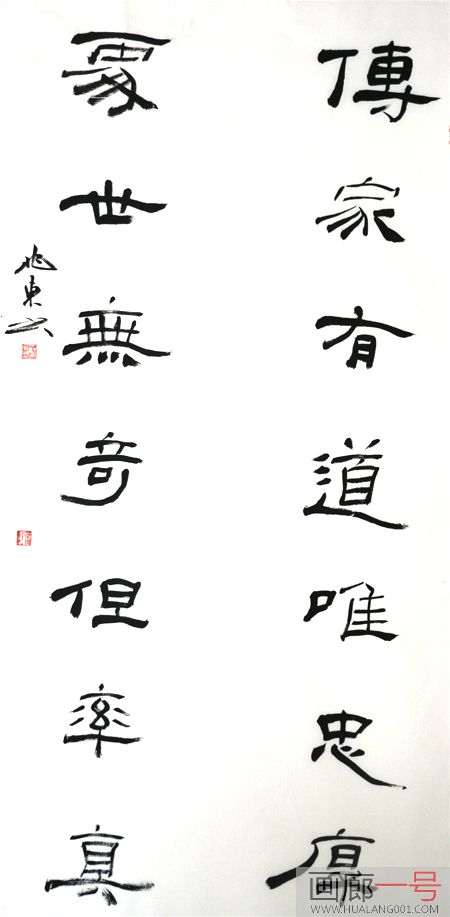 傳家有道唯忠厚
處世無奇但率真
兆東
画廊一号
WWW.HUALANG001.COM